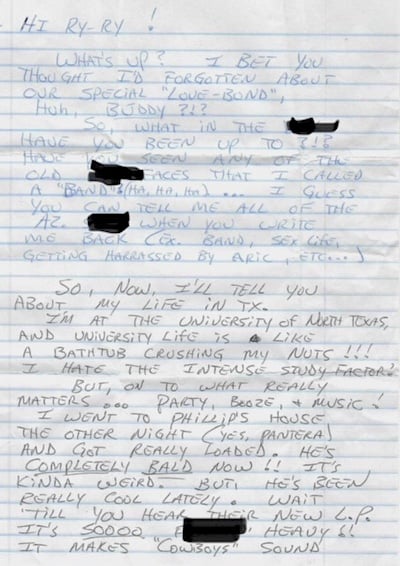 HI RY-RY !
WHAT'S UP? I BET YOU
THOUGHT I'D FORGOTTEN ABOUT
OUR SPECIAL "LOVE-BOND",
HUH, BUDDY ?!?
SO, WHAT IN THE
HAVE YOU BEEN UP TO ?!?
HAVE YOU SEEN ANY OF THE
OLD FACES THAT I CALLED
A "BAND"? (HA, HA, HA) ... I GUESS
YOU CAN TELL ME ALL OF THE
AZ. WHEN YOU WRITE
ME BACK (EX. BAND, SEX LIFE,
GETTING HARRASSED BY ARIC, ETC...)
SO, NOW, I'LL TELL YOU
ABOUT MY LIFE IN TX.
I'M AT THE UNIVERSITY OF NORTH TEXAS,
AND UNIVERSITY LIFE IS LIKE
A BATHTUB CRUSHING MY NUTS !!!
I HATE THE INTENSE STUDY-FACTOR!
BUT, ON TO WHAT REALLY
MATTERS ... PARTY, BOOZE, & MUSIC !
I WENT TO PHILLIP'S HOUSE
THE OTHER NIGHT (YES, PANTERA)
AND GOT REALLY LOADED. HE'S
COMPLETELY BALD NOW !! IT'S
KINDA WEIRD. BUT, HE'S BEEN
REALLY COOL LATELY. WAIT
'TILL YOU HEAR THEIR NEW L.P.
IT'S SOOOO F HEAVY !!
IT MAKES "COWBOYS" SOUND